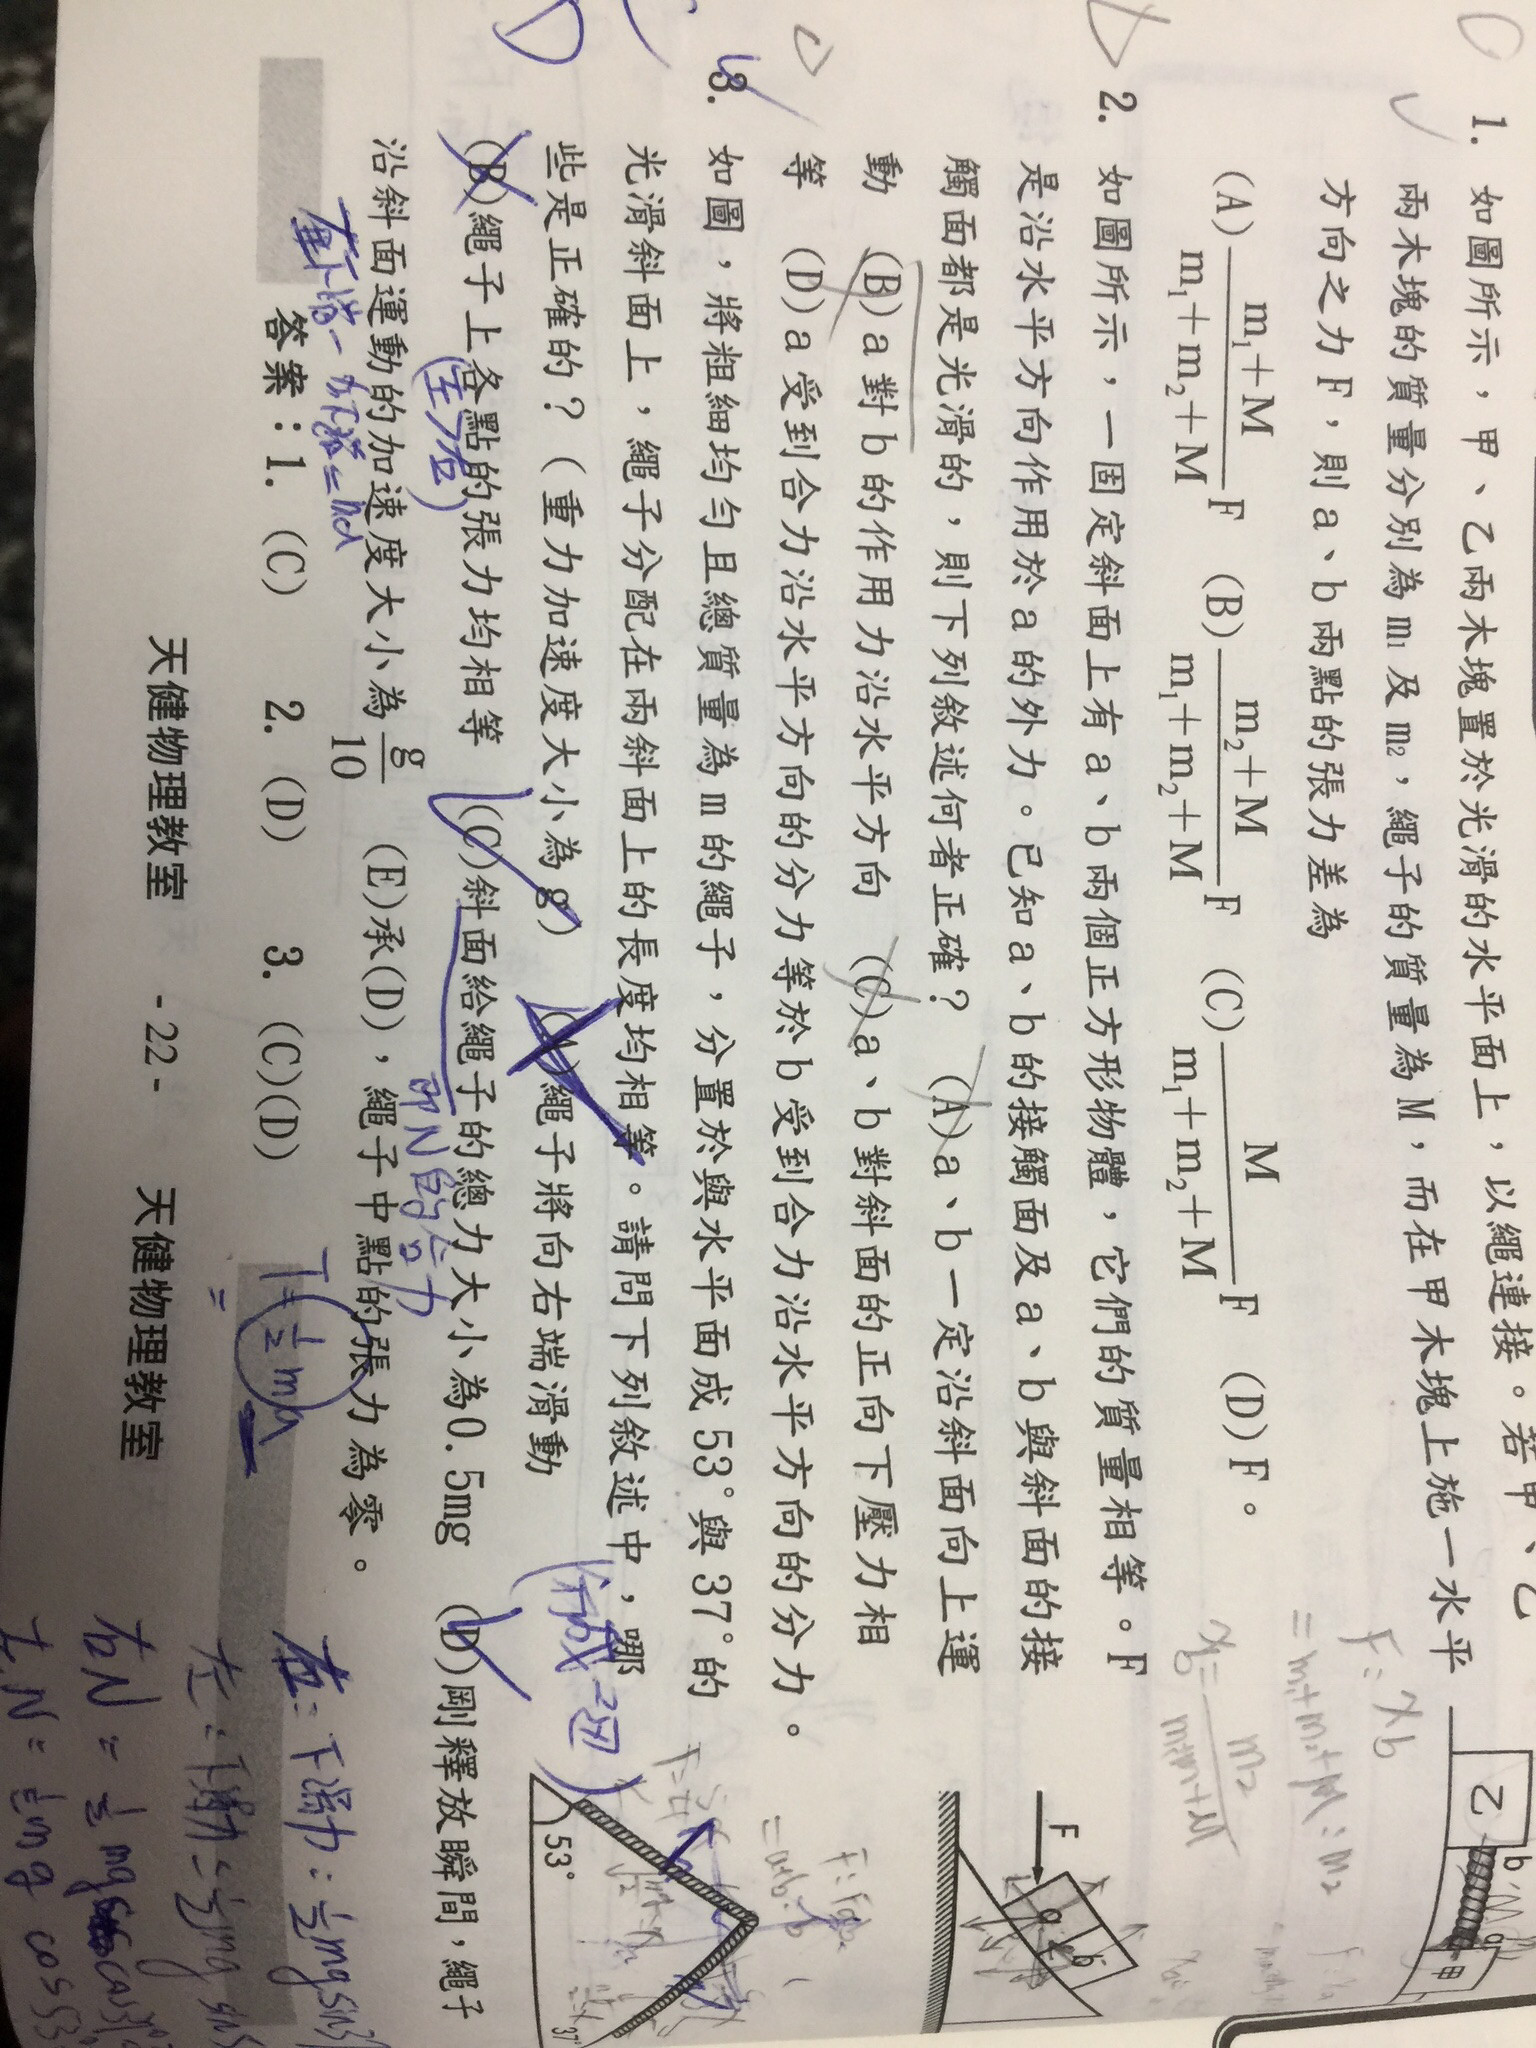 1. 如圖所示，甲、乙兩木塊置於光滑的水平面上，以繩連接。若甲、乙
兩木塊的質量分別為m₁及m₂，繩子的質量為M，而在甲木塊上施一水平
方向之力F，則a、b兩點的張力差為
(A) (m₁+M)/(m₁+m₂+M) F (B) (m₂+M)/(m₁+m₂+M) F (C) M/(m₁+m₂+M) F (D)F。
乙 b a 甲
F : xb
= m₁+m₂+M : m₂
2. 如圖所示，一固定斜面上有a、b兩個正方形物體，它們的質量相等。F
是沿水平方向作用於a的外力。已知a、b的接觸面及a、b與斜面的接
觸面都是光滑的，則下列敘述何者正確？ (A)a、b一定沿斜面向上運
動 (B)a對b的作用力沿水平方向 (C)a、b對斜面的正向下壓力相
等 (D)a受到合力沿水平方向的分力等於b受到合力沿水平方向的分力。
F a b
3. 如圖，將粗細均勻且總質量為m的繩子，分置於與水平面成53°與37°的
光滑斜面上，繩子分配在兩斜面上的長度均相等。請問下列敘述中，哪
些是正確的？（重力加速度大小為g） (A)繩子將向右端滑動
(B)繩子上各點的張力均相等 (C)斜面給繩子的總力大小為0.5mg (D)剛釋放瞬間，繩子
沿斜面運動的加速度大小為g/10 (E)承(D)，繩子中點的張力為零。
53° 37°
(左>右)
即N的合力
答案：1. (C) 2. (D) 3. (C)(D)
天健物理教室 -22- 天健物理教室